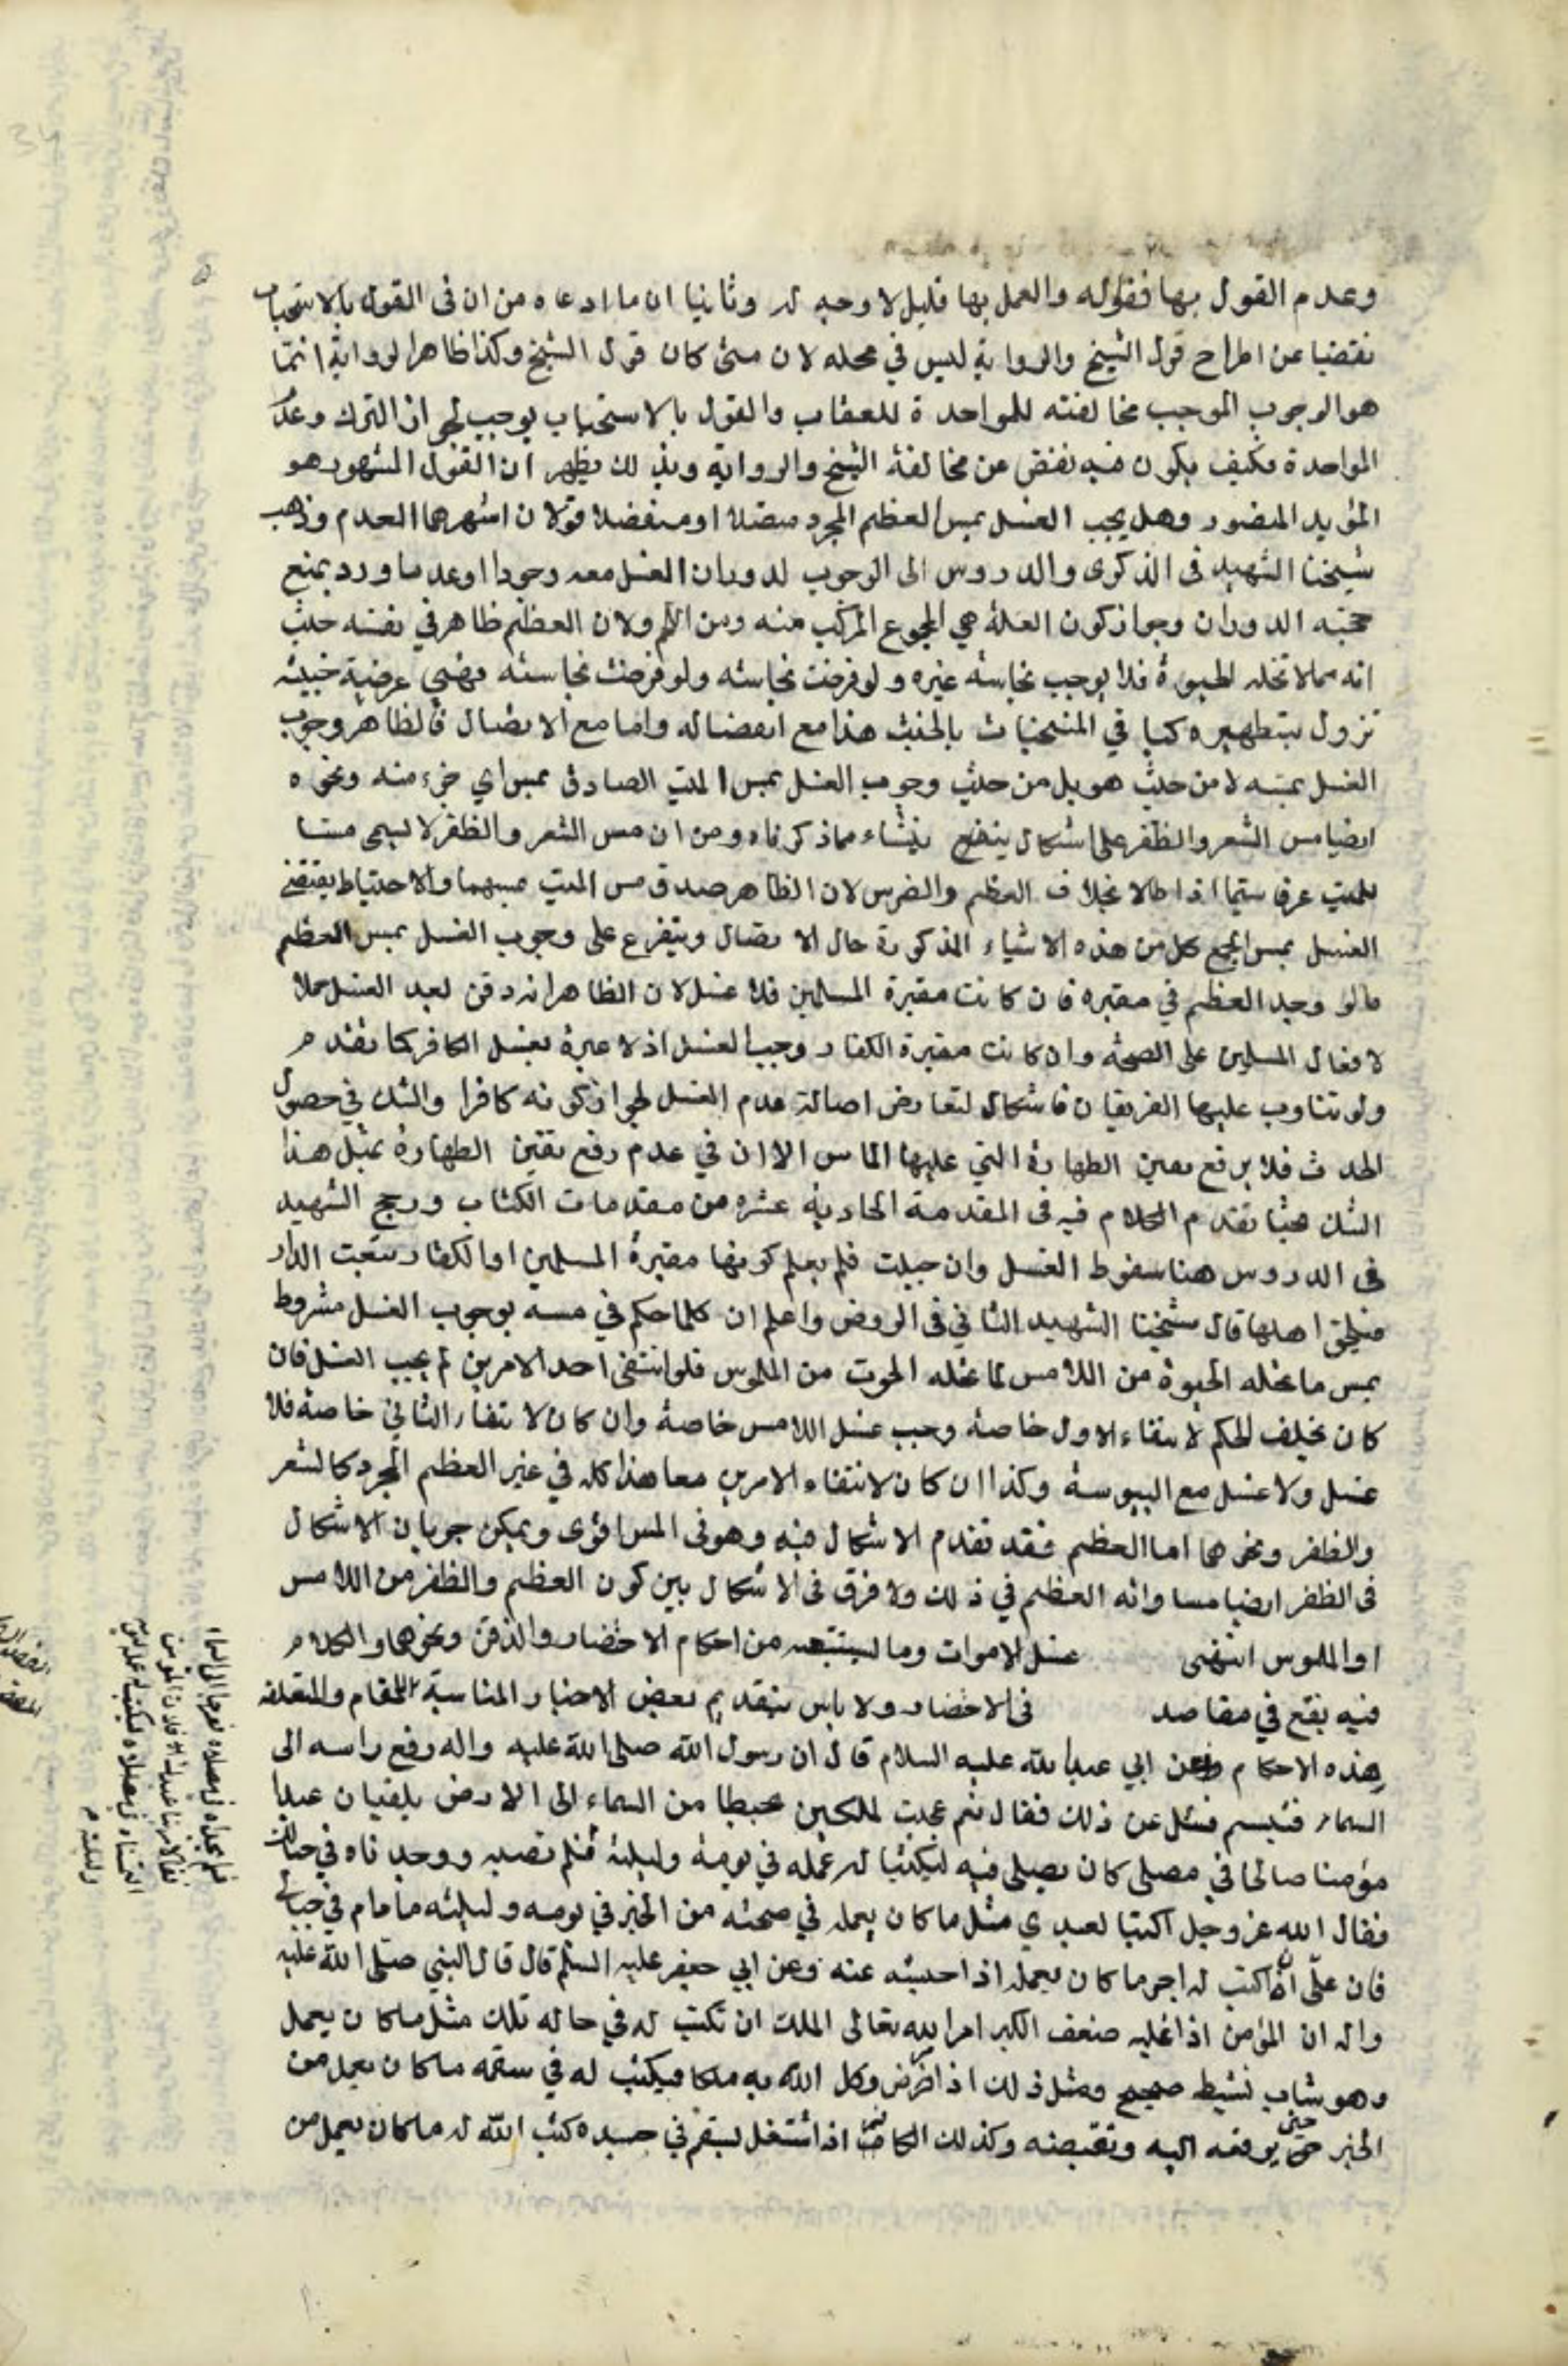 وعدم القول بها فقوله والعمل بها قليل لا وجه له وثانيا ان ما ادعاه من ان في القول بالاستحباب
تفصيا عن اطراح قول الشيخ والرواية ليس في محله لان متى كان قول الشيخ وكذا ظاهر الرواية انما
هو الوجوب الموجب مخالفته للمواخدة للعقاب والقول بالاستحباب يوجب لجواز الترك وعدم
المواخدة فكيف يكون فيه تفض عن مخالفة الشيخ والرواية وبذلك يظهر ان القول المشهور هو
المؤيد المنصور وهل يجب الغسل بمس العظم المجرد متصلا او منفصلا قولان اشهرهما العدم وذهب
شيخنا الشهيد في الذكرى والدروس الى الوجوب لدوران الغسل معه وجودا وعدما ورد بمنع
حجية الدوران وجواز كون العلة هي المجموع المركب منه ومن اللحم ولان العظم ظاهر في نفسه حيث
انه مما لا تحله الحيوة فلا يوجب نجاسة غيره ولو فرضت نجاسته ولو فرضت نجاسته فهي عرضية خبيثه
تزول بتطهيره كما في المتنجسات بالخبث هذا مع انفصاله واما مع الاتصال فالظاهر وجوب
الغسل بمسه لا من حيث هو بل من حيث وجوب الغسل بمس الميت الصادق بمس اي جزء منه ونحوه
ايضا مس الشعر والظفر على اشكال ينشاء مما ذكرناه ومن ان مس الشعر والظفر لا يسمى مسا
للميت عرفا سيما اذا طالا بخلاف العظم والضرس لان الظاهر صدق مس الميت بمسهما والاحتياط يقتضي
الغسل بمس الجميع كل من هذه الاشياء المذكورة حال الاتصال ويتفرع على وجوب الغسل بمس العظم
ما لو وجد العظم في مقبرة فان كانت مقبرة المسلمين فلا غسل لان الظاهر انه دفن بعد الغسل حملا
لافعال المسلمين على الصحة وان كانت مقبرة الكفار وجب الغسل اذ لا عبرة بغسل الكافر كما تقدم
ولو تناوب عليها الفريقان فاشكال لتعارض اصالة عدم الغسل لجواز كونه كافرا والشك في حصول
الحدث فلا يرفع يقين الطهارة التي عليها الماس الا ان في عدم رفع يقين الطهارة بمثل هذا
الشك بحثا تقدم الكلام فيه في المقدمة الحادية عشره من مقدمات الكتاب ورجح الشهيد
في الدروس هنا سقوط الغسل وان جهلت فلم يعلم كونها مقبرة المسلمين او الكفار تبعت الدار
فيلحق اهلها قال شيخنا الشهيد الثاني في الروض واعلم ان كلما حكم في مسه بوجوب الغسل مشروط
بمس ما تحله الحيوة من اللامس لما تحله الحيوة من الملموس فلو انتفى احد الامرين لم يجب الغسل فان
كان تخلف الحكم لانتفاء الاول خاصة وجب غسل اللامس خاصة وان كان لانتفاء الثاني خاصة فلا
غسل ولا غسل مع اليبوسة وكذا ان كان لانتفاء الامرين معا هذا كله في غير العظم المجرد كالشعر
والظفر ونحوهما اما العظم فقد تقدم الاشكال فيه وهو في المس اقوى ويمكن جريان الاشكال
في الظفر ايضا لمساواته العظم في ذلك ولا فرق في الاشكال بين كون العظم والظفر من اللامس
او الملموس انتهى غسل الاموات وما يستتبعه من احكام الاحتضار والدفن ونحوهما والكلام
فيه يقع في مقاصد في الاحتضار ولا باس بتقديم بعض الاخبار المناسبة للمقام والمتعلقه
بهذه الاحكام فعن ابي عبد الله عليه السلام قال ان رسول الله صلى الله عليه واله رفع راسه الى
السماء فتبسم فسئل عن ذلك فقال نعم عجبت لملكين هبطا من السماء الى الارض يلتمسان عبدا
مؤمنا صالحا في مصلى كان يصلي فيه ليكتبا له عمله في يومه وليلته فلم نصبه ووجدناه في حبالك
فقال الله عز وجل اكتبا لعبدي مثل ما كان يعمله في صحته من الخير في يومه وليلته مادام في حبالي
فان علي ان اكتب له اجر ما كان يعمله اذا حبسته عنه وعن ابي جعفر عليه السلم قال قال النبي صلى الله عليه
واله ان المؤمن اذا غلبه ضعف الكبر امر الله تعالى الملك ان تكتب له في حاله تلك مثل ما كان يعمل
وهو شاب نشيط صحيح ومثل ذلك اذا مرض وكل الله به ملكا فيكتب له في سقمه ما كان يعمل من
الخير حتى يرفعه اليه وتقبضه وكذلك الكافر اذا اشتغل بسقم في جسده كتب الله له ما كان يعمل من
فلم يجداه في مصلاه فعرجا الى السماء
فقالا ربنا عبدك فلان المؤمن
التمسناه في مصلاه لنكتب له عمله ليومه
وليلته م